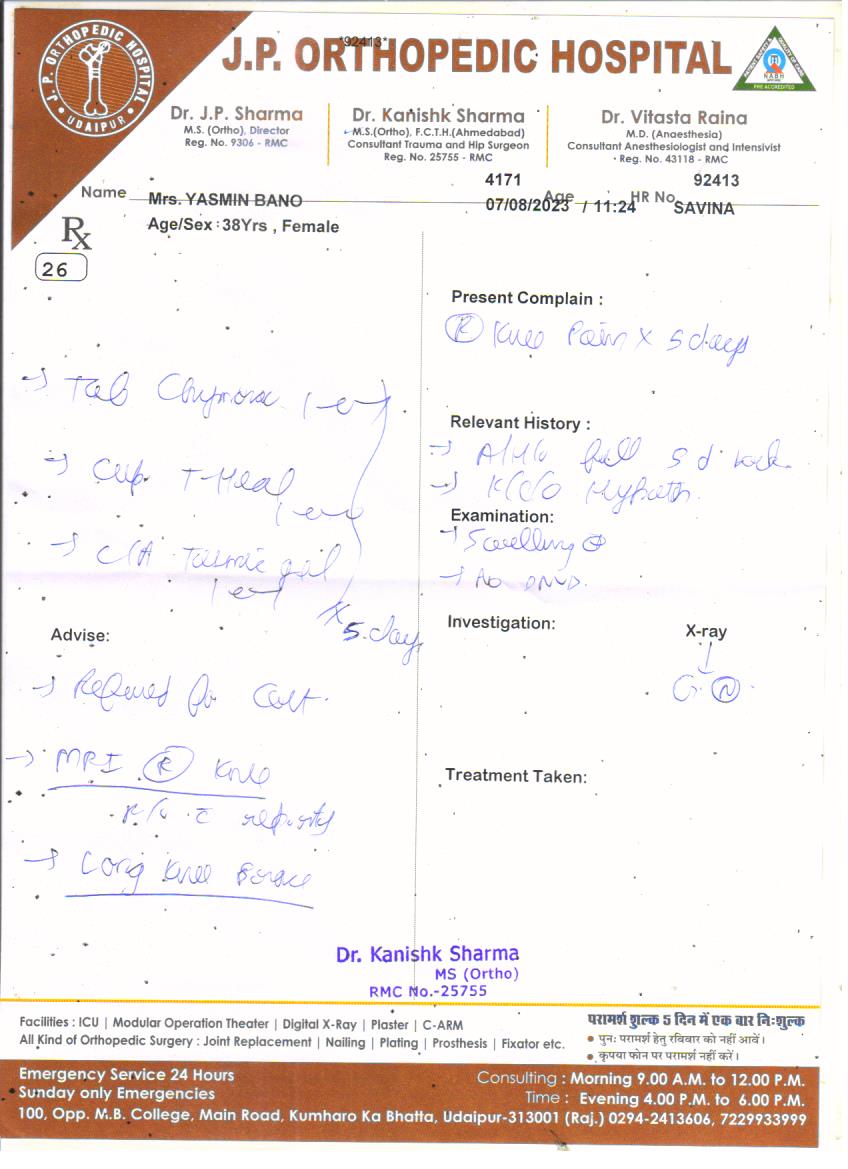 J. P. ORTHOPEDIC HOSPITAL
UDAIPUR
J.P. ORTHOPEDIC HOSPITAL
*92413*
NABH
PRE ACCREDITED
Dr. J.P. Sharma
M.S. (Ortho), Director
Reg. No. 9306 - RMC
Dr. Kanishk Sharma
M.S.(Ortho), F.C.T.H.(Ahmedabad)
Consultant Trauma and Hip Surgeon
Reg. No. 25755 - RMC
Dr. Vitasta Raina
M.D. (Anaesthesia)
Consultant Anesthesiologist and Intensivist
Reg. No. 43118 - RMC
4171 92413
Name Mrs. YASMIN BANO Age HR No
07/08/2023 / 11:24 SAVINA
Age/Sex : 38Yrs , Female
Rx
26
Present Complain :
(R) Knee Pain x 5 days
Relevant History :
A/H/o fall 5 d
K/C/O
Examination:
Swelling ⊕
No DNVD.
Investigation:
X-ray
(N)
Treatment Taken:
Tab Chymora 1
Cap. T-Heal
1
gel
1
x 5 days
Advise:
Referred for
MRI (R) Knee
Long Knee Brace
Dr. Kanishk Sharma
MS (Ortho)
RMC No.-25755
Facilities : ICU | Modular Operation Theater | Digital X-Ray | Plaster | C-ARM
All Kind of Orthopedic Surgery : Joint Replacement | Nailing | Plating | Prosthesis | Fixator etc.
परामर्श शुल्क 5 दिन में एक बार निःशुल्क
• पुनः परामर्श हेतु रविवार को नहीं आवें।
• कृपया फोन पर परामर्श नहीं करें।
Emergency Service 24 Hours
Sunday only Emergencies
Consulting : Morning 9.00 A.M. to 12.00 P.M.
Time : Evening 4.00 P.M. to 6.00 P.M.
100, Opp. M.B. College, Main Road, Kumharo Ka Bhatta, Udaipur-313001 (Raj.) 0294-2413606, 7229933999